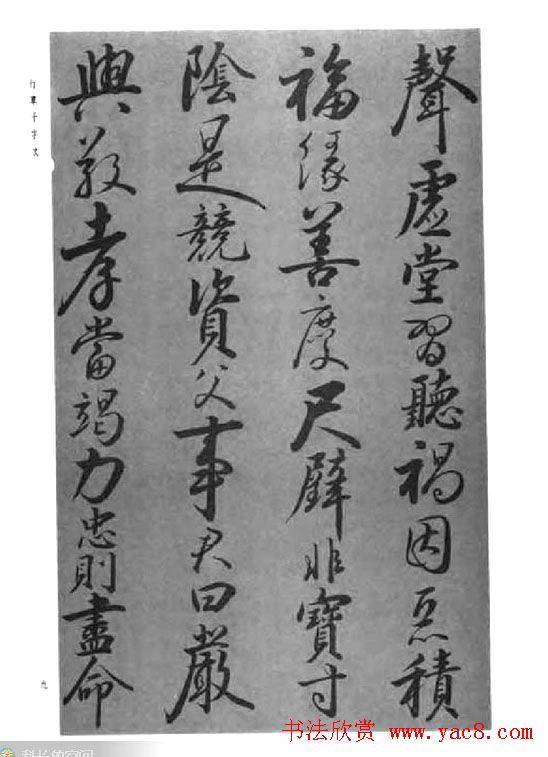 聲虛堂習聽禍因惡積
福緣善慶尺璧非寶寸
陰是競資父事君曰嚴
與敬孝當竭力忠則盡命
行草千字文
九
书法欣赏 www.yac8.com
科长的空间